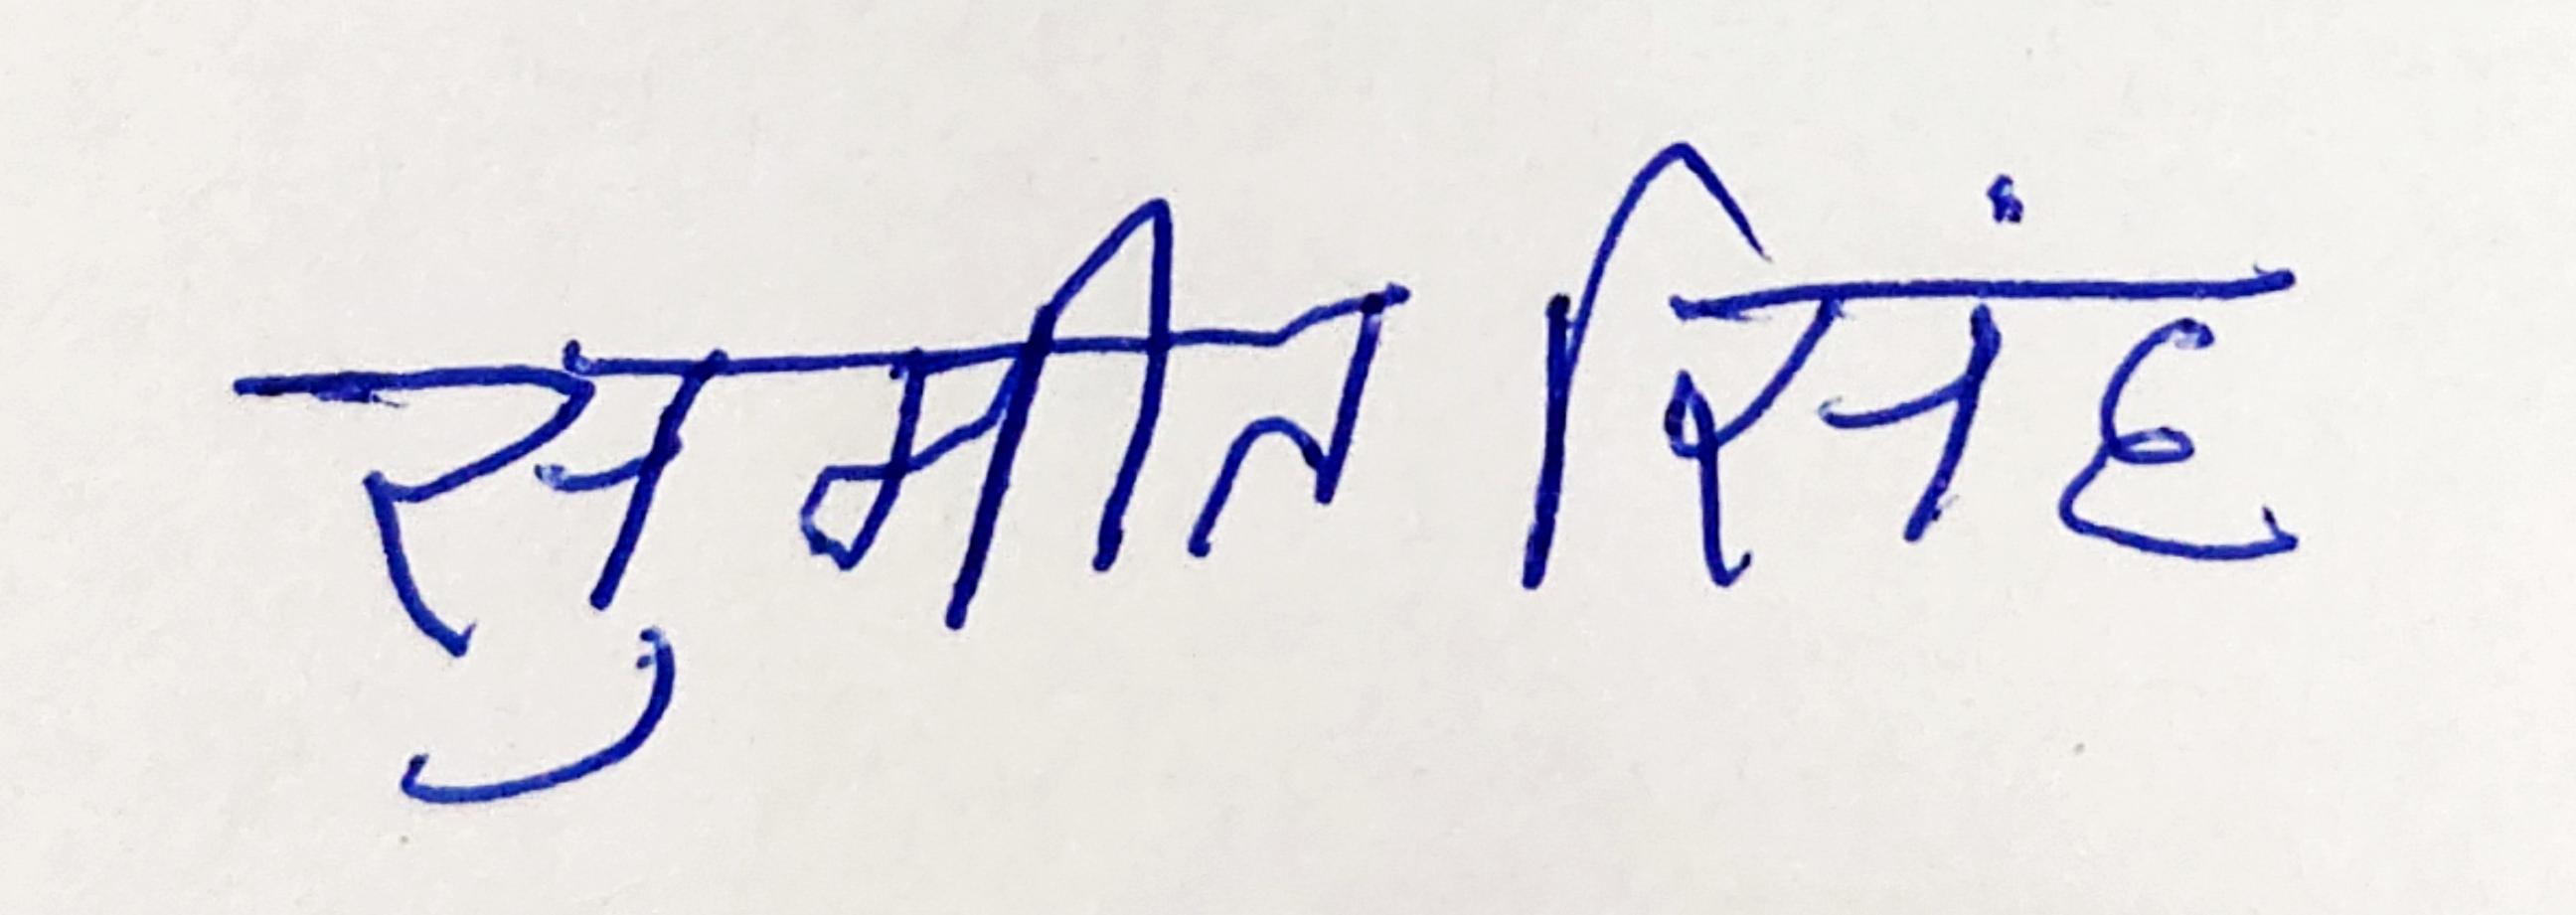 सुमीत सिंह